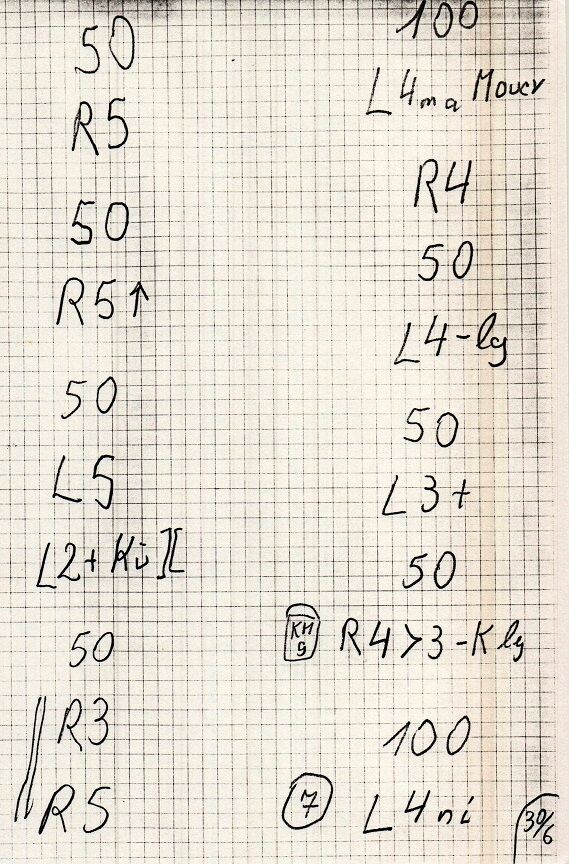 50
R5
50
R5↑
50
L5
L2+ Kü ][
50
R3
R5
100
L4 ma Mauer
R4
50
L4-lg
50
L3+
50
KM 9 R4>3-K lg
100
7 L4 ni
30/6